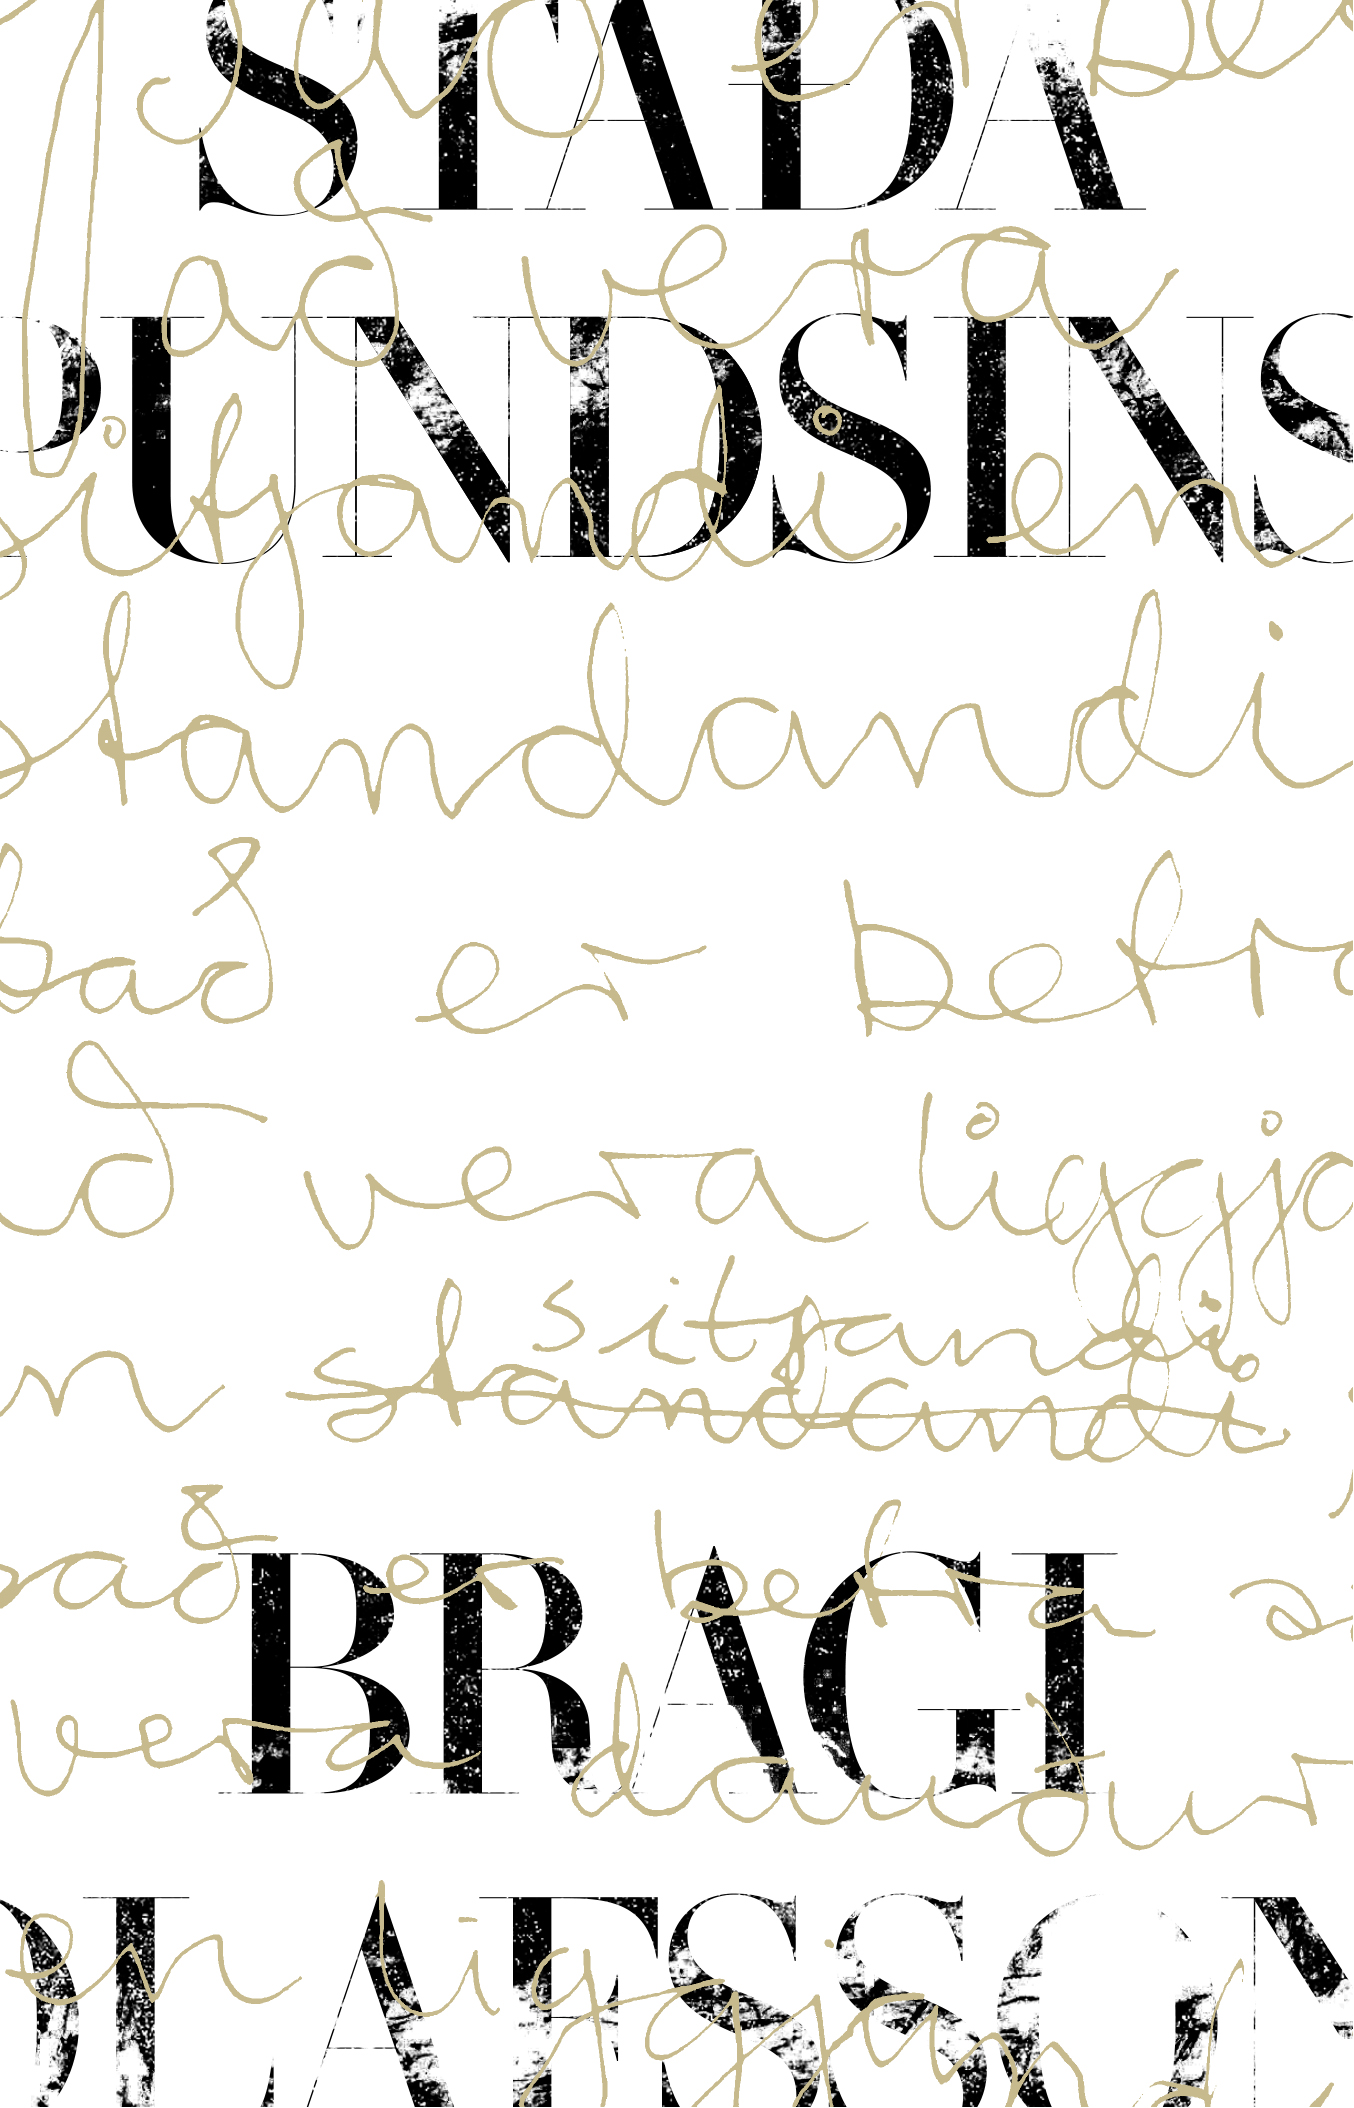 það er be
STAÐA
að vera
PUNDSINS
sitjandi en
standandi
það er betra
að vera liggja
sitjandi
en standandi
það er betra að
BRAGI
vera dauður
ÓLAFSSON
en liggjandi